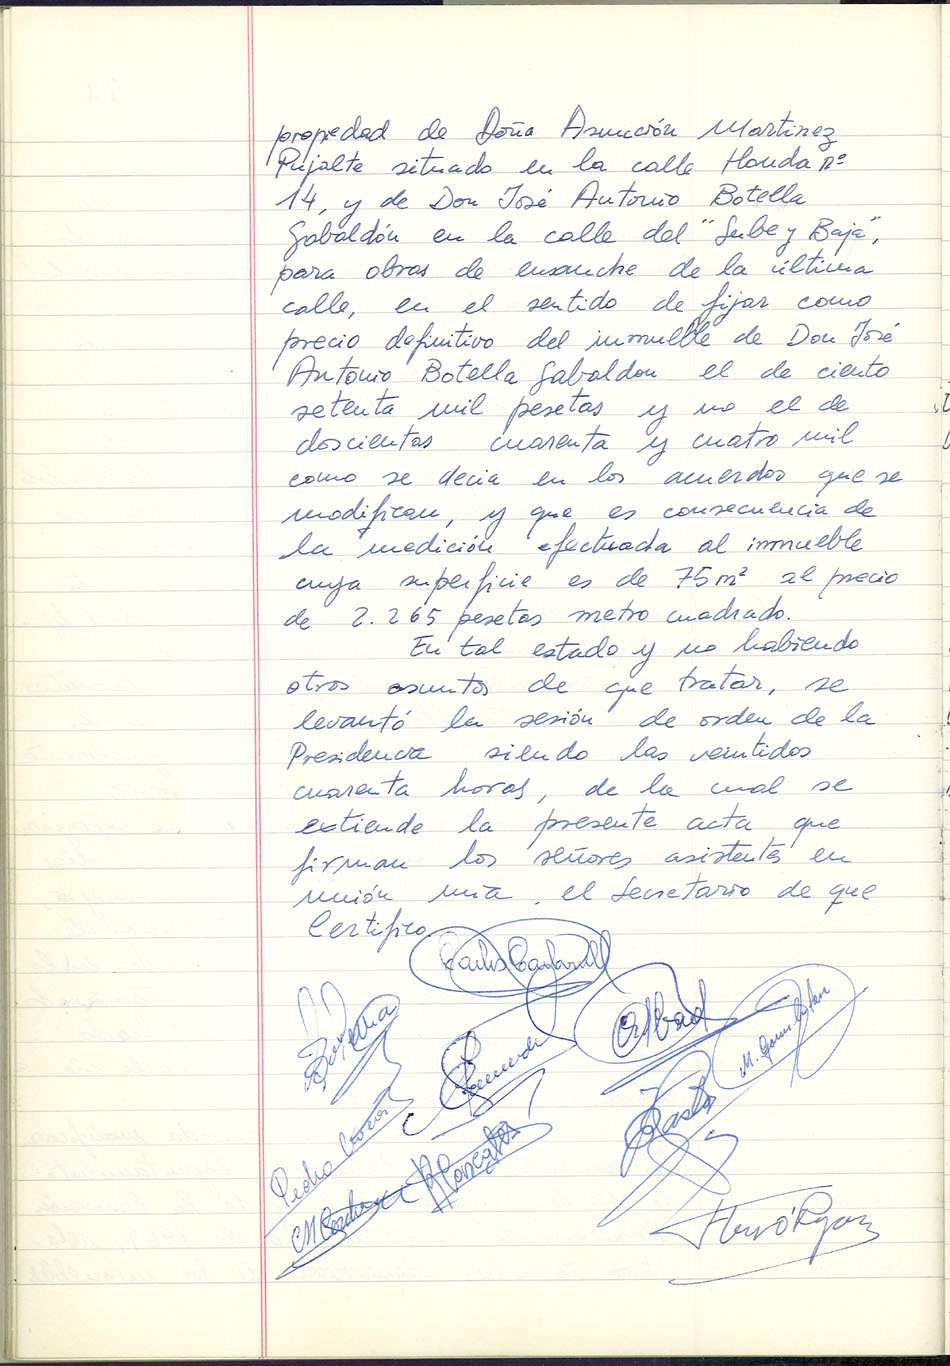 propiedad de Doña Asunción Martinez
Pujalte situado en la calle Honda nº
14, y de Don José Antonio Botella
Gabaldón en la calle del "Sube y Baja",
para obras de ensanche de la última
calle, en el sentido de fijar como
precio definitivo del inmueble de Don José
Antonio Botella Gabaldon el de ciento
setenta mil pesetas y no el de
doscientas cuarenta y cuatro mil
como se decia en los acuerdos que se
modifican, y que es consecuencia de
la medición efectuada al inmueble
cuya superficie es de 75 m² al precio
de 2.265 pesetas metro cuadrado.
En tal estado y no habiendo
otros asuntos de que tratar, se
levantó la sesión de orden de la
Presidencia siendo las veintidos
cuarenta horas, de la cual se
extiende la presente acta que
firman los señores asistentes en
unión mía, el Secretario de que
Certifico.
Carlos
Abad
Pedro